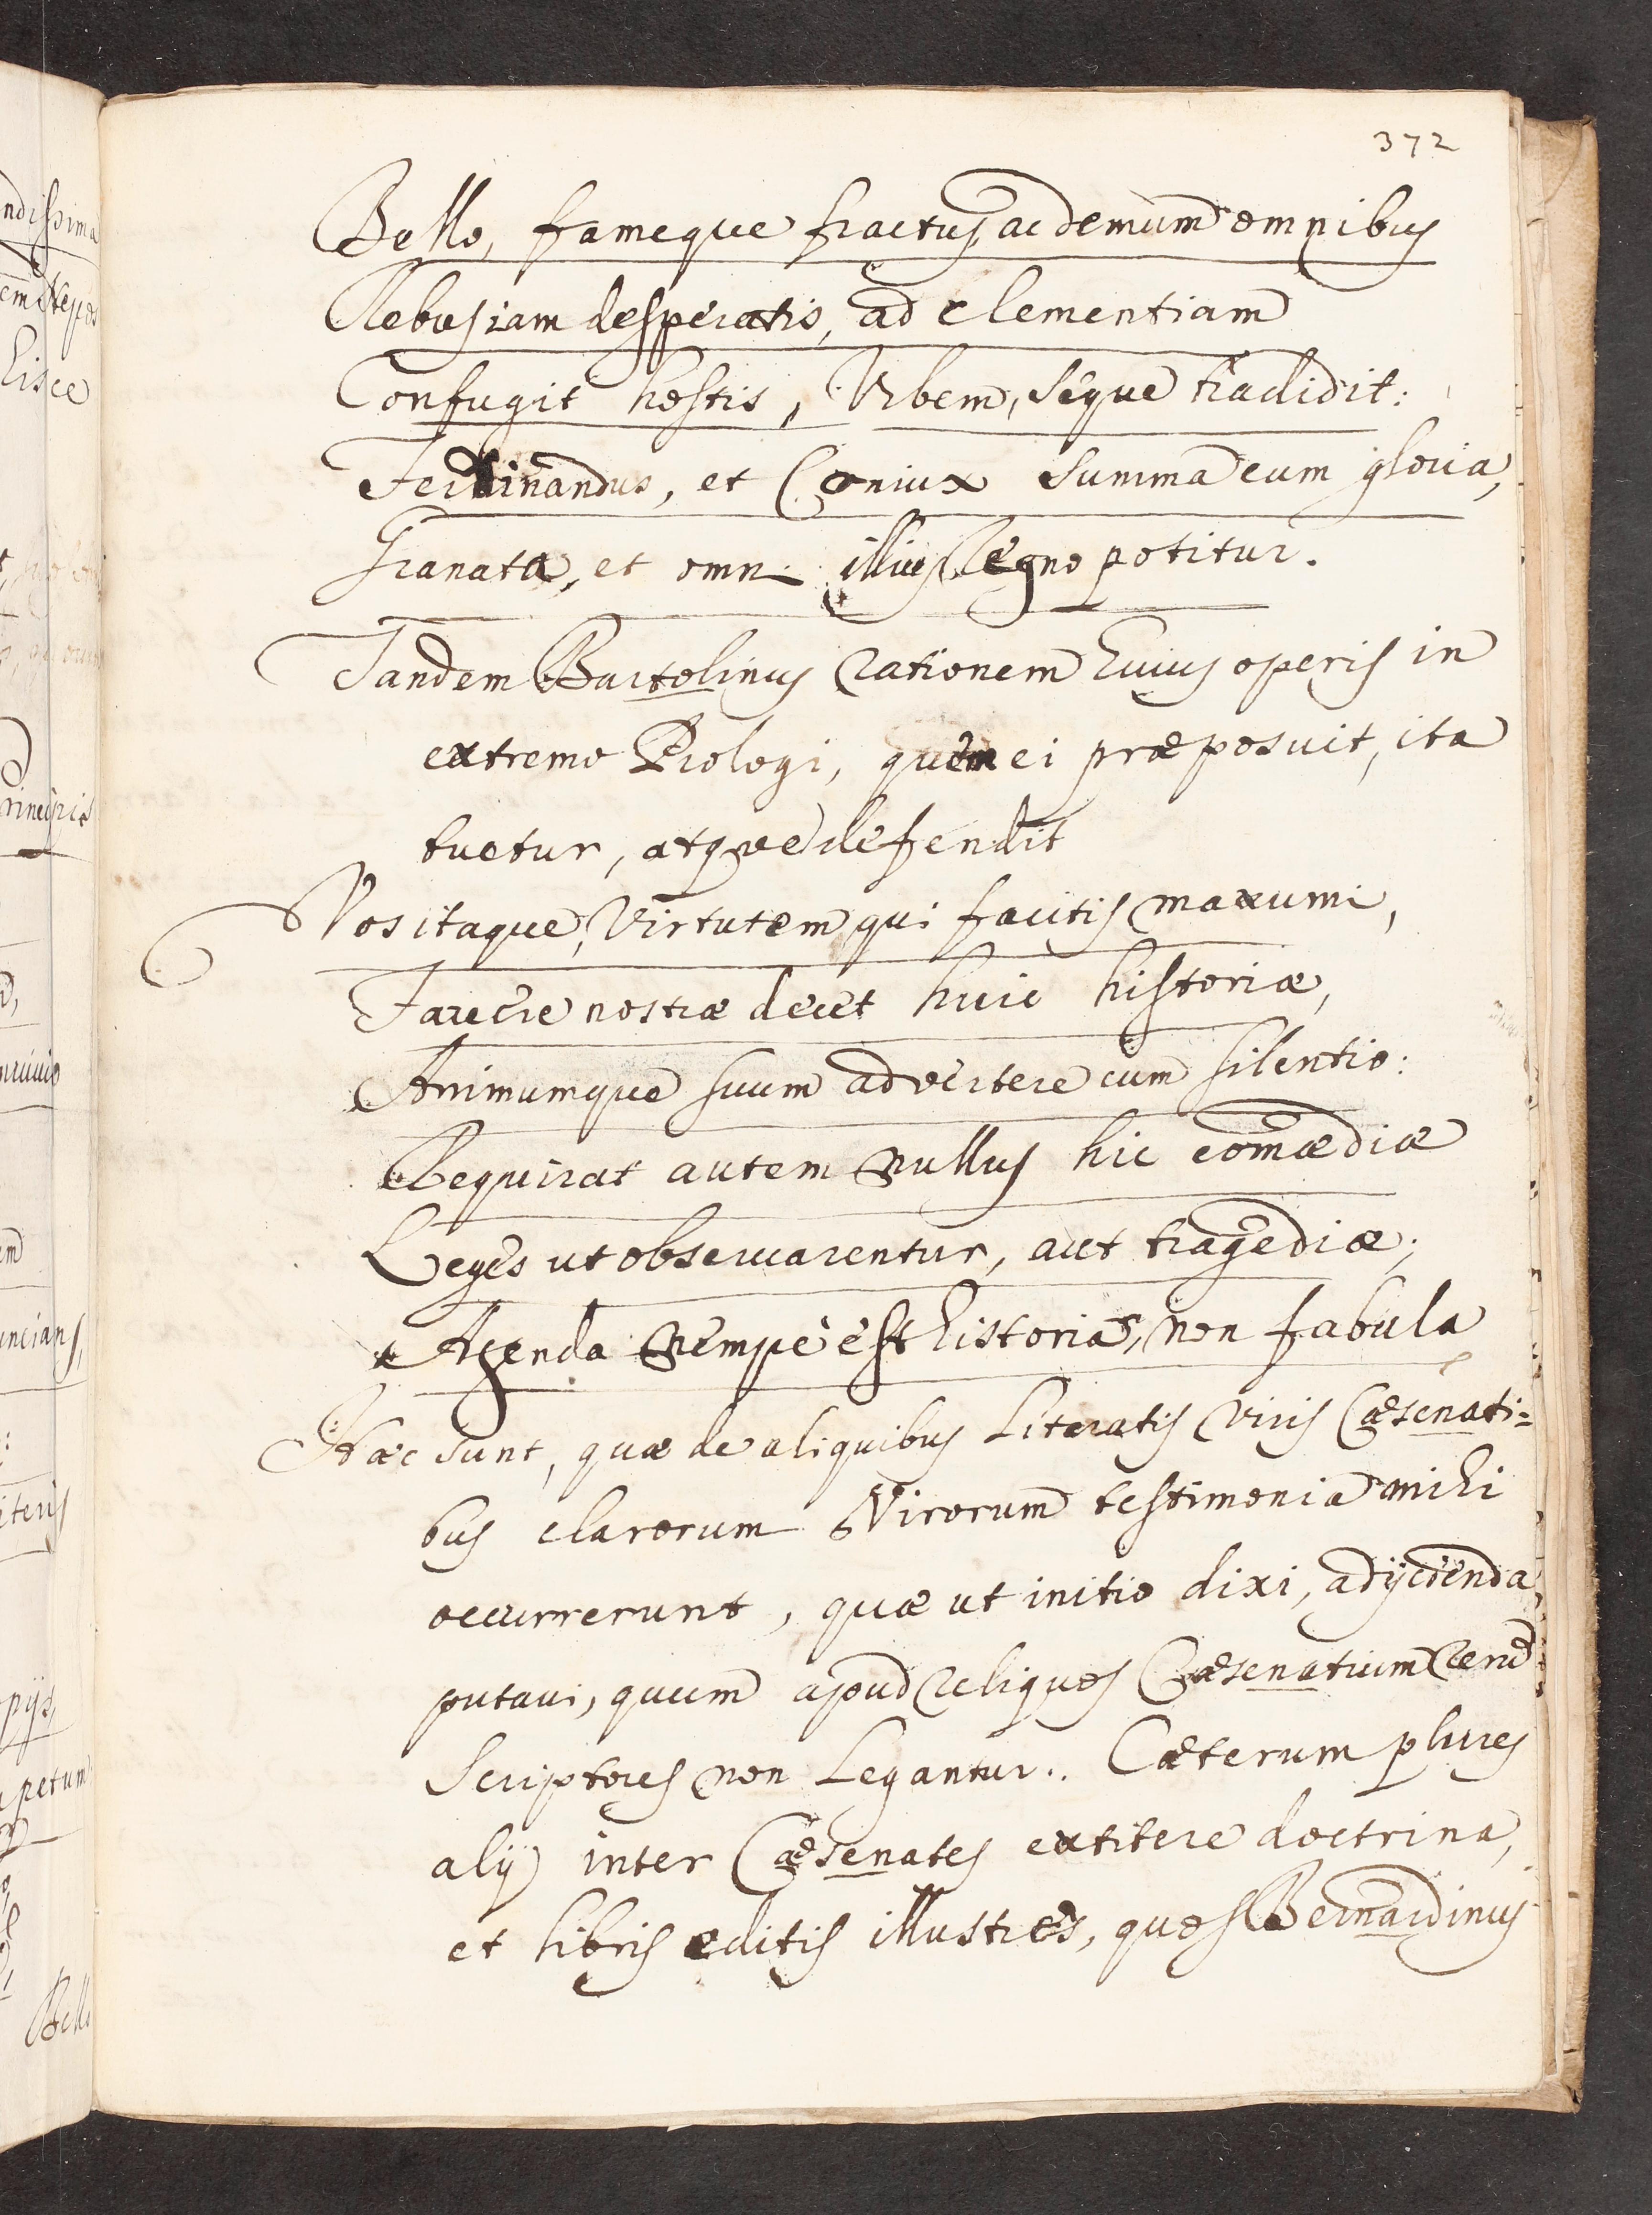 372
Bello, fameque fractus, ac demum omnibus
Rebus iam desperatis, ad clementiam
Confugit hostis, Urbem, seque tradidit:
Ferdinandus, et Coniux summa cum gloria,
Granata, et omni illius Regno potitur.
Tandem Bartolinus rationem huius operis in
extremo Prologi, quem ei præposuit, ita
tuetur, atque defendit
Vos itaque, Virtutem qui facitis maxumi,
Favere nostræ decet huic historiæ,
Animumque suum advertere cum silentio:
Requirat autem nullus hic comædiæ
Leges ut observarentur, aut tragediæ;
Agenda nempe est historia, non fabula
Hæc sunt, quæ de aliquibus Literatis viris Cæsenati=
bus clarorum Virorum testimonia mihi
occurrerunt, quæ ut initio dixi, adijcienda
putavi, quum apud reliquos Cæsenatium rerum
Scriptores non Legantur. Cæterum plures
alij inter Cæsenates extitere doctrina,
et libris editis illustres, quos Bernardinus